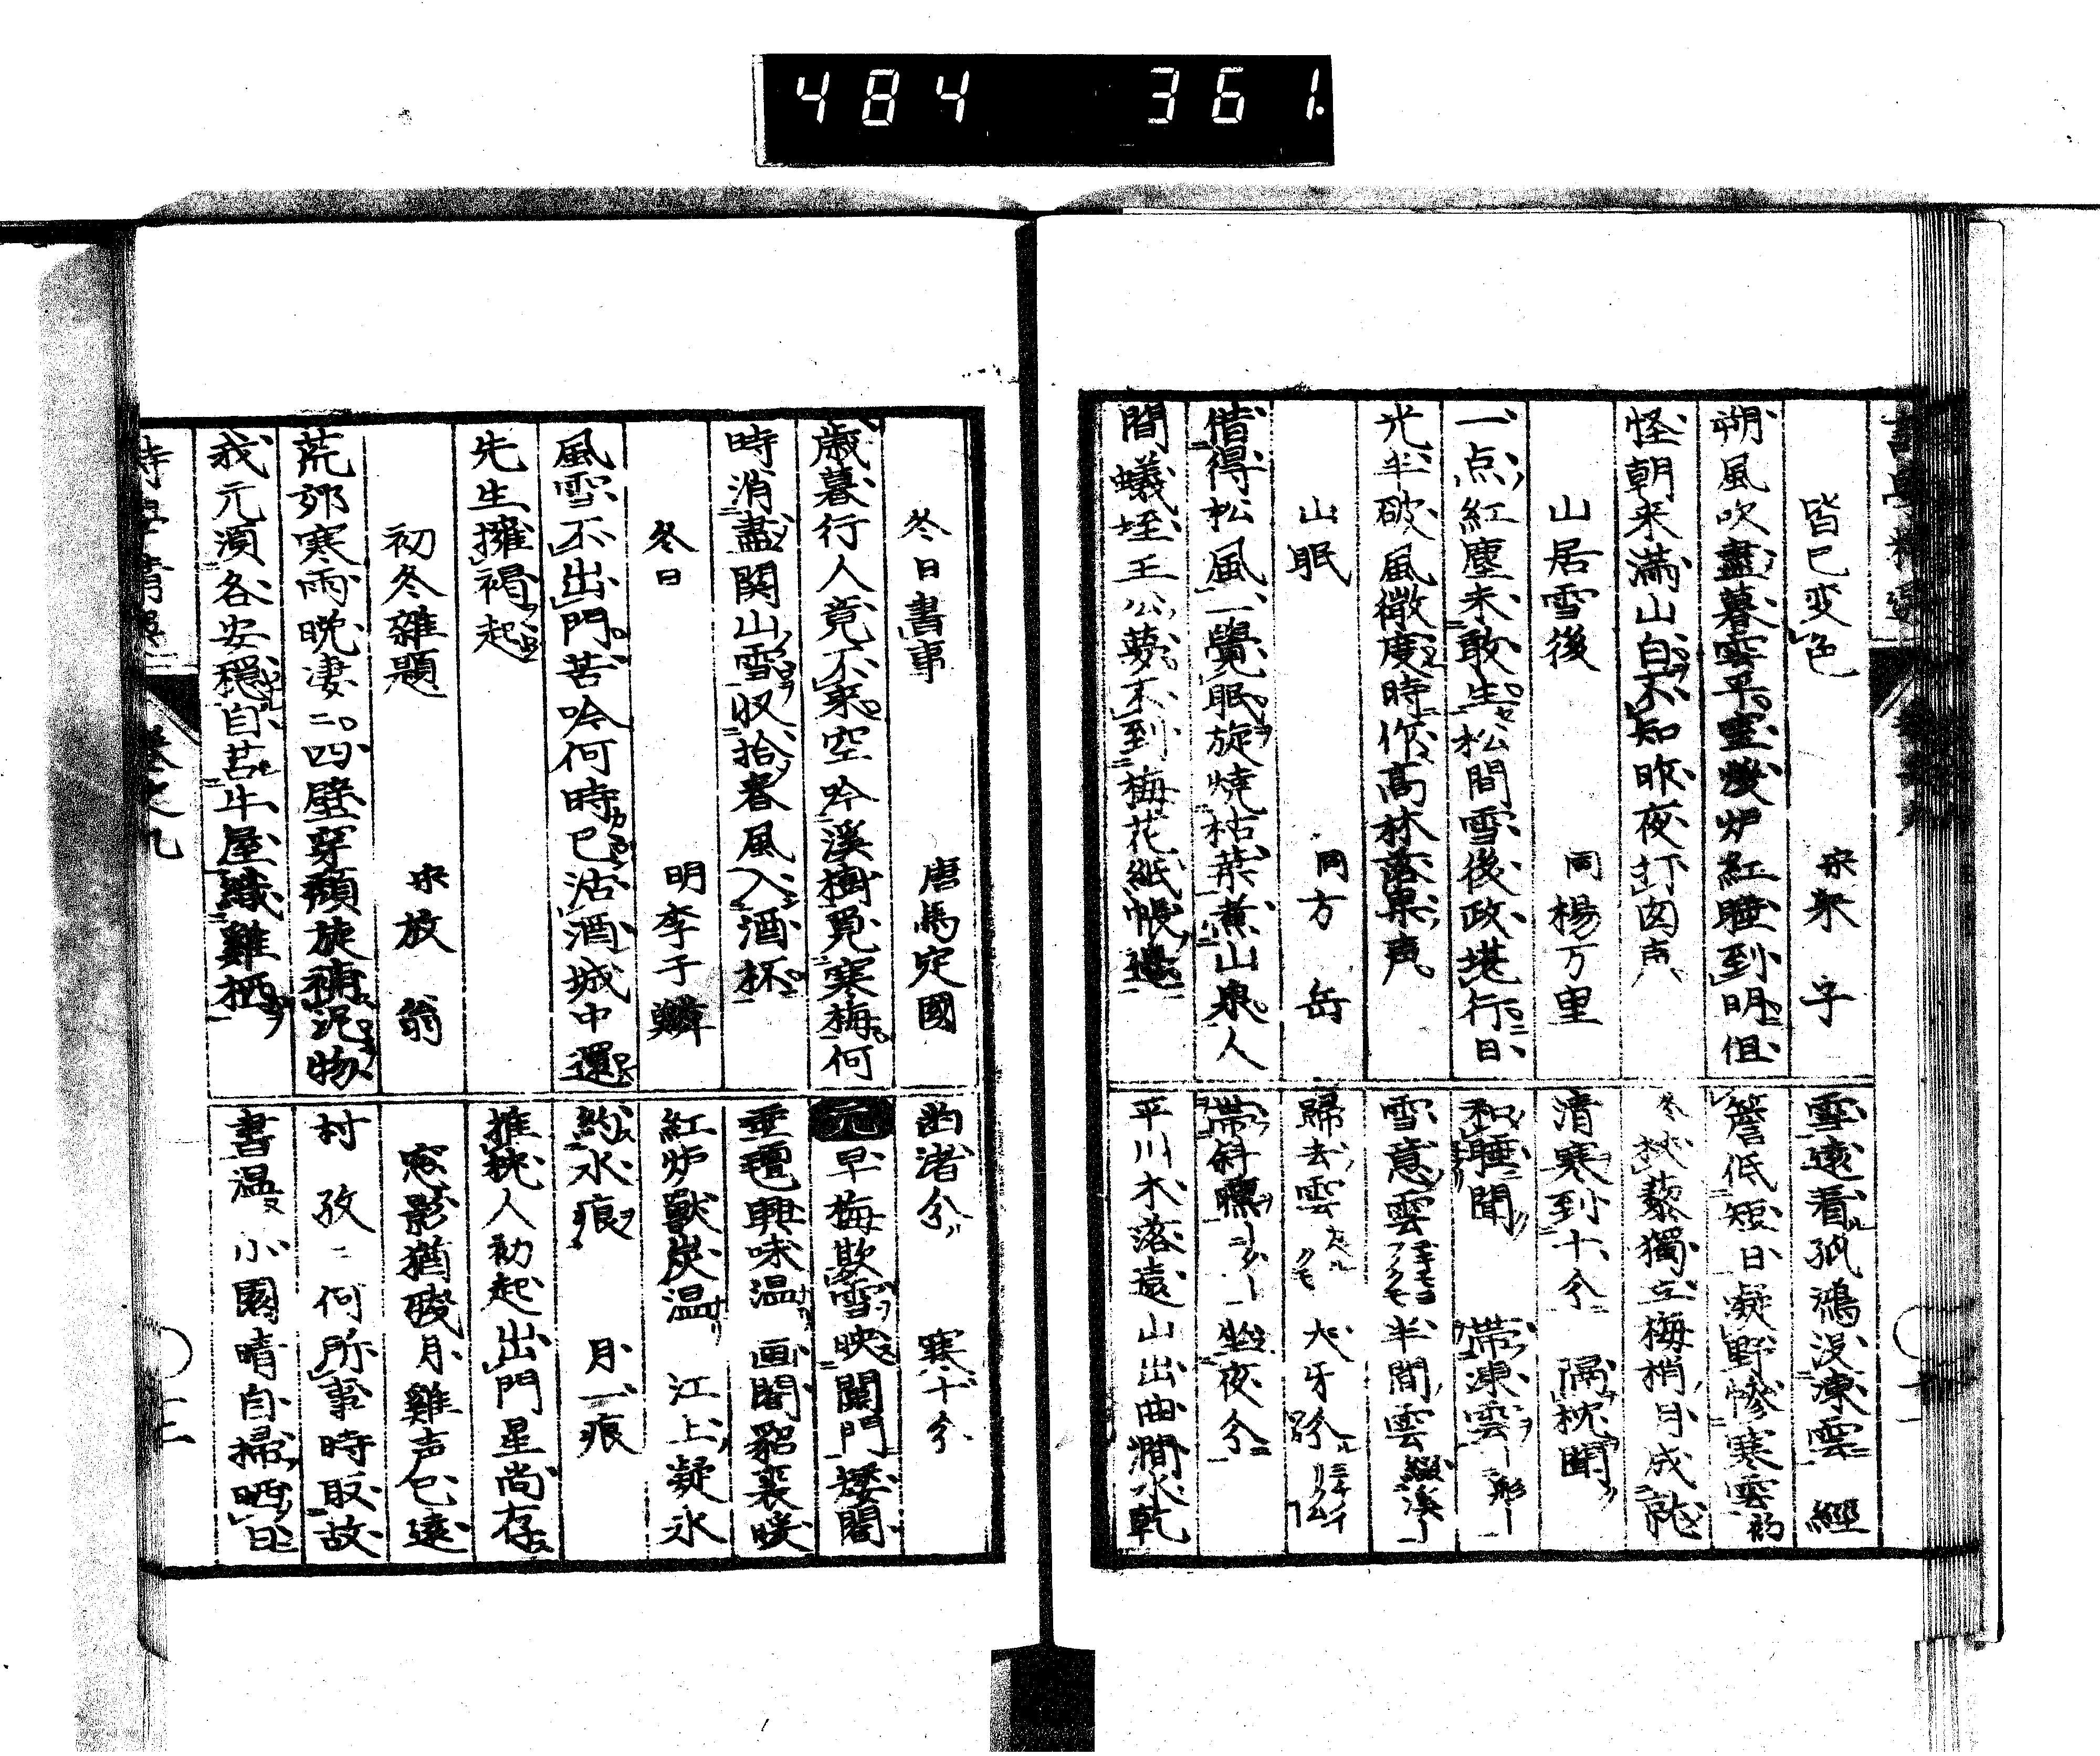 484 361.
皆已変色 宋朱子
朔風吹盡暮雲平室煖炉紅睡到明但
怪朝来満山白不知昨夜打囱声
山居雪後 同楊万里
一点紅塵未敢生松間雪後政堪行日
光半破風微度時作高林落果声
山眠 同方岳
借得松風一覺眠旋焼枯葉煮山泉人
間蟻垤王公夢不到梅花紙帳邊
雪遠看孤鴻没凍雲 經
簷低短日凝野惨寒雲初
冬杖藜獨立梅梢月成龍
清寒到十分 隔枕聞
和睡聞 帯凍雲
雪意雲 半間雲
歸去雲 犬牙分
帯斜曛 坐夜分
平川木落遠山出曲澗水乾
冬日書事 唐馬定國
歳暮行人竟不来空吟溪樹覓寒梅何
時消盡関山雪収拾春風入酒杯
冬日 明李于鱗
風雪不出門苦吟何時已沽酒城中還
先生擁褐起
初冬雑題 宋放翁
荒郊寒雨晩凄〻四壁穿頽旋補泥物
我元湏各安穏自苫牛屋織雞栖
幽渚分 寒十分
元 早梅欺雪映閣門矮閣
垂氊興味温 画閣貂裘暖
紅炉獣炭温 江上凝氷
約水痕 月一痕
推枕人初起出門星尚存
窓影猶残月雞声已遠
村 孜〻何所事時取故
書温 小園晴自掃晒日
巻之九
十二